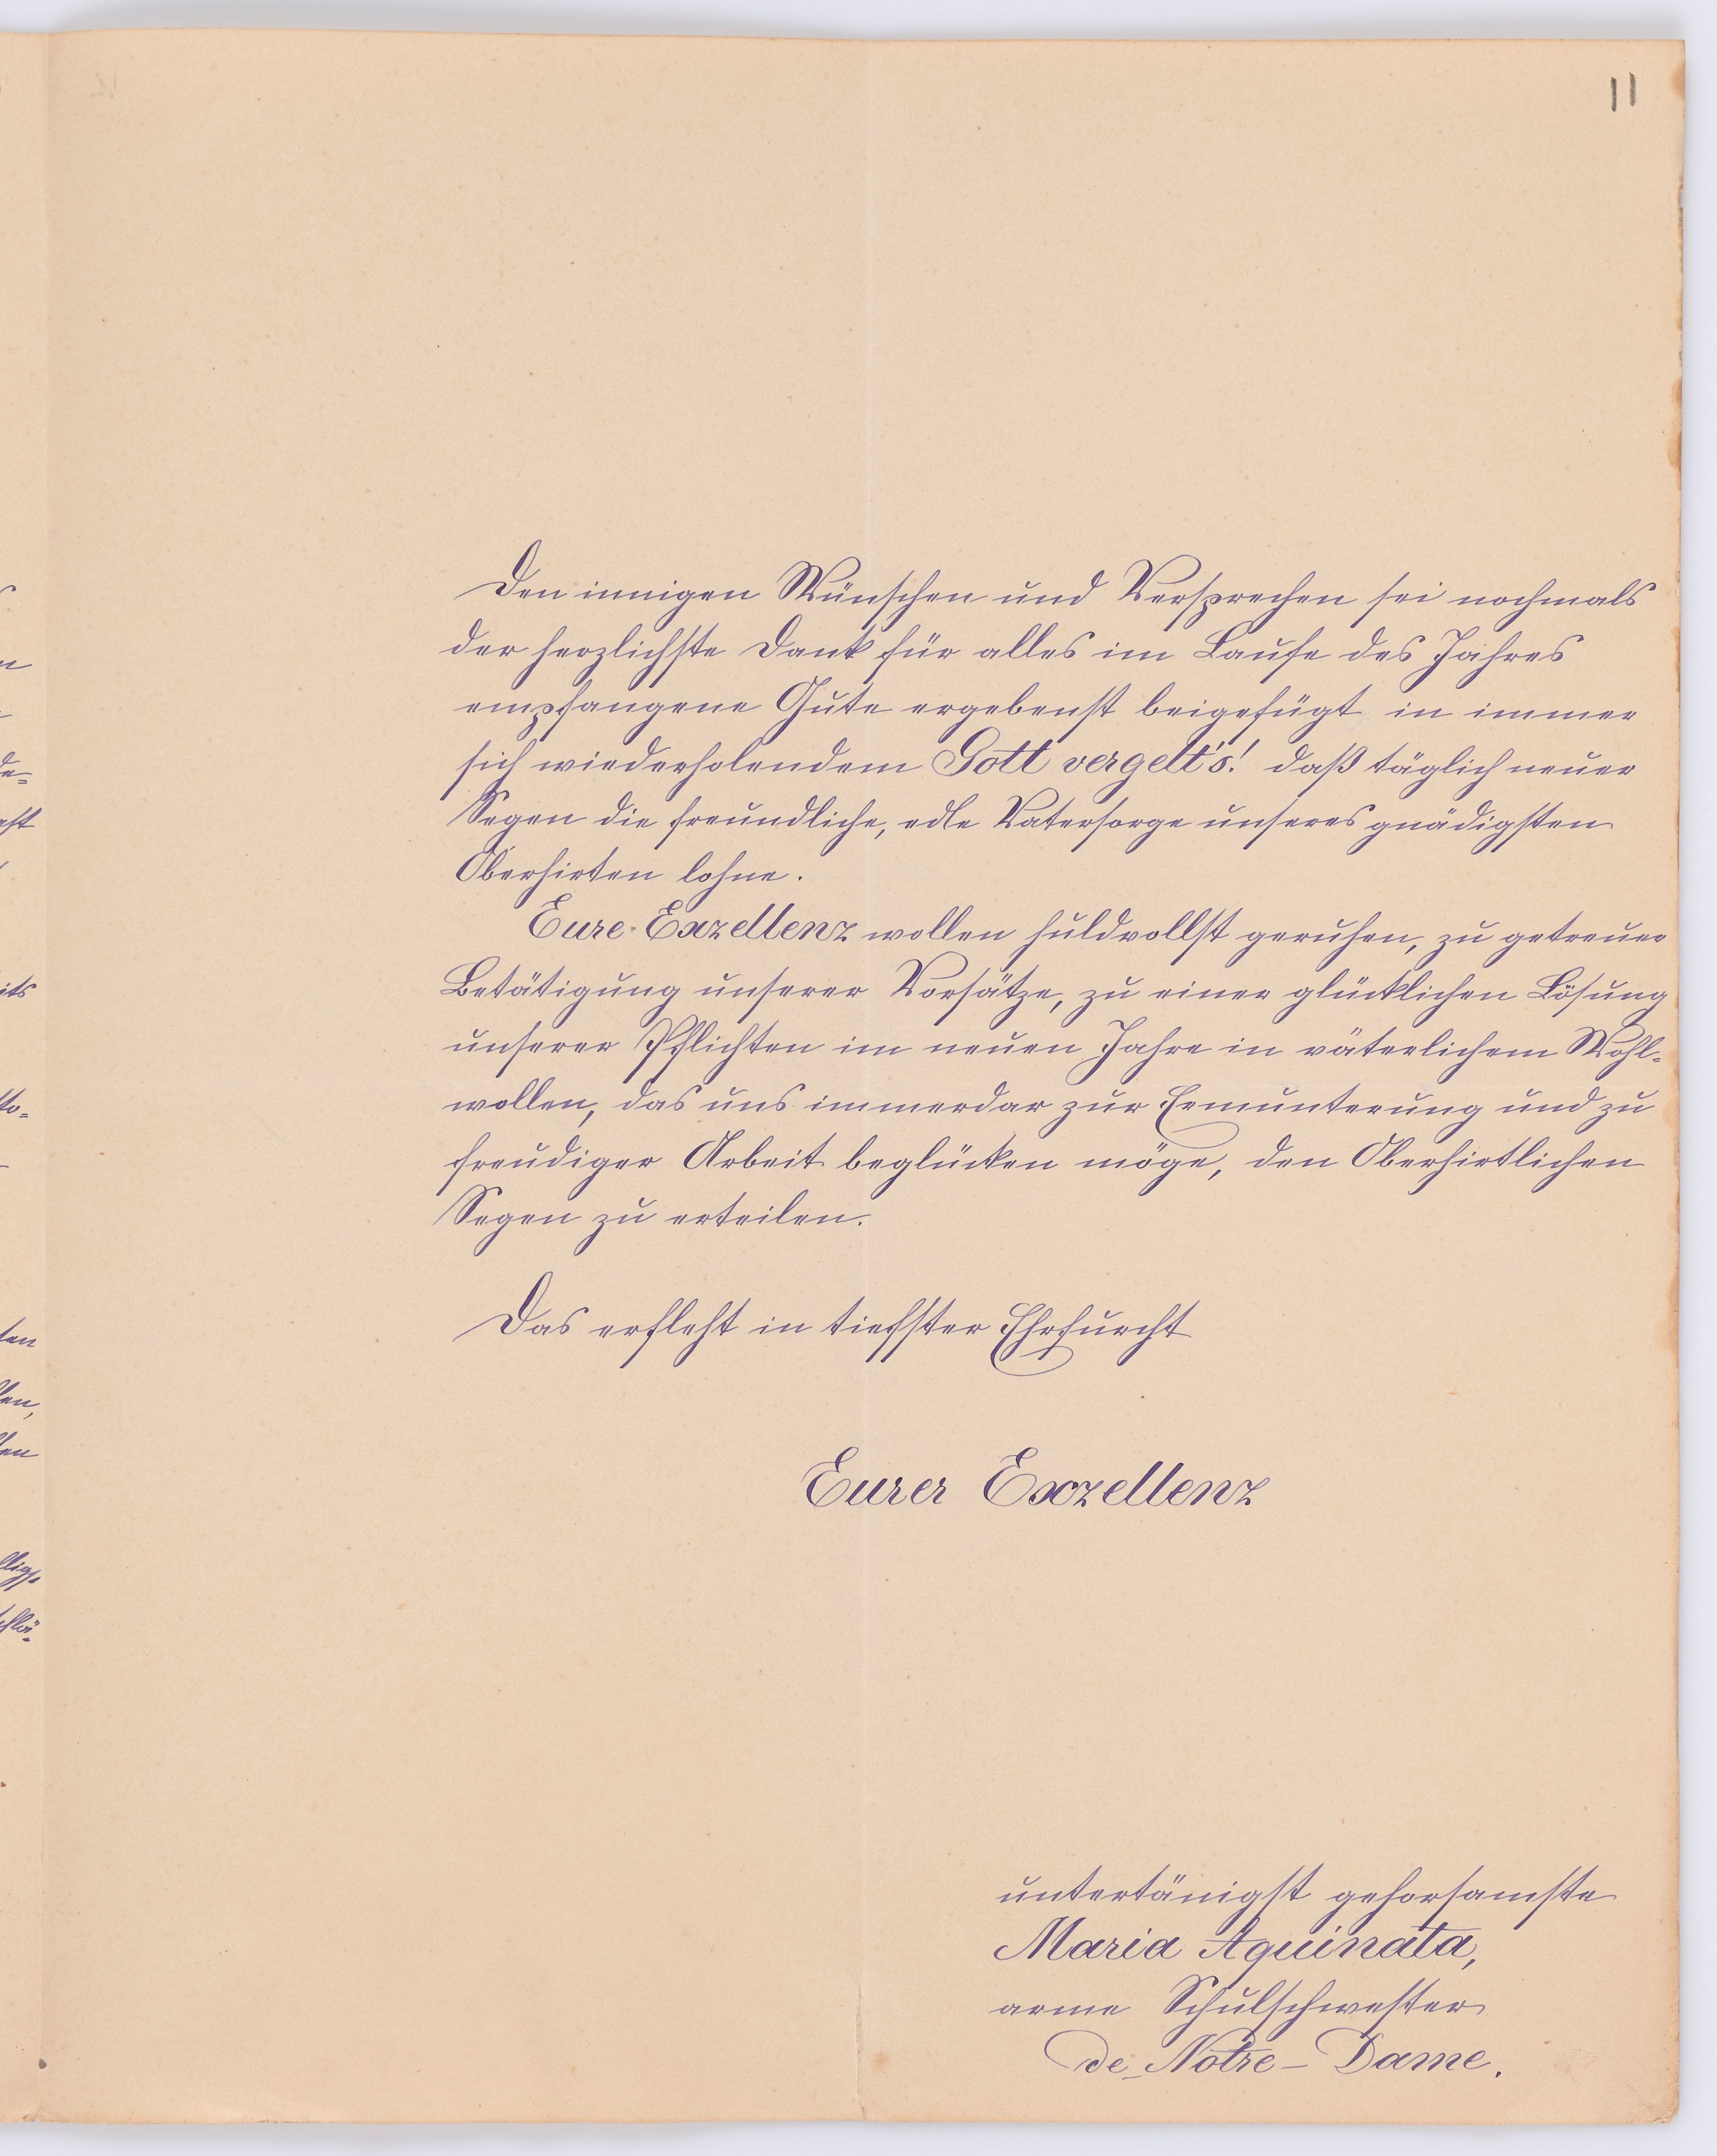 11
Den innigen Wünschen und Versprechen sei nochmals
der herzlichste Dank für alles im Laufe des Jahres
empfangene Gute ergebenst beigefügt in immer
sich wiederholendem Gott vergelt's! daß täglich neuer
Segen die freundliche, edle Vatersorge unseres gnädigsten
Oberhirten lohne.
Eure Exzellenz wollen huldvollst geruhen, zu getreuer
Betätigung unserer Vorsätze, zu einer glücklichen Lösung
unserer Pflichten im neuen Jahre in väterlichem Wohl-
wollen, das uns immerdar zur Ermunterung und zu
freudiger Arbeit beglücken möge, den Oberhirtlichen
Segen zu erteilen.
Das erfleht in tiefster Ehrfurcht
Eurer Exzellenz
untertänigst gehorsamste
Maria Aquinata,
arme Schulschwester
de Notre-Dame.